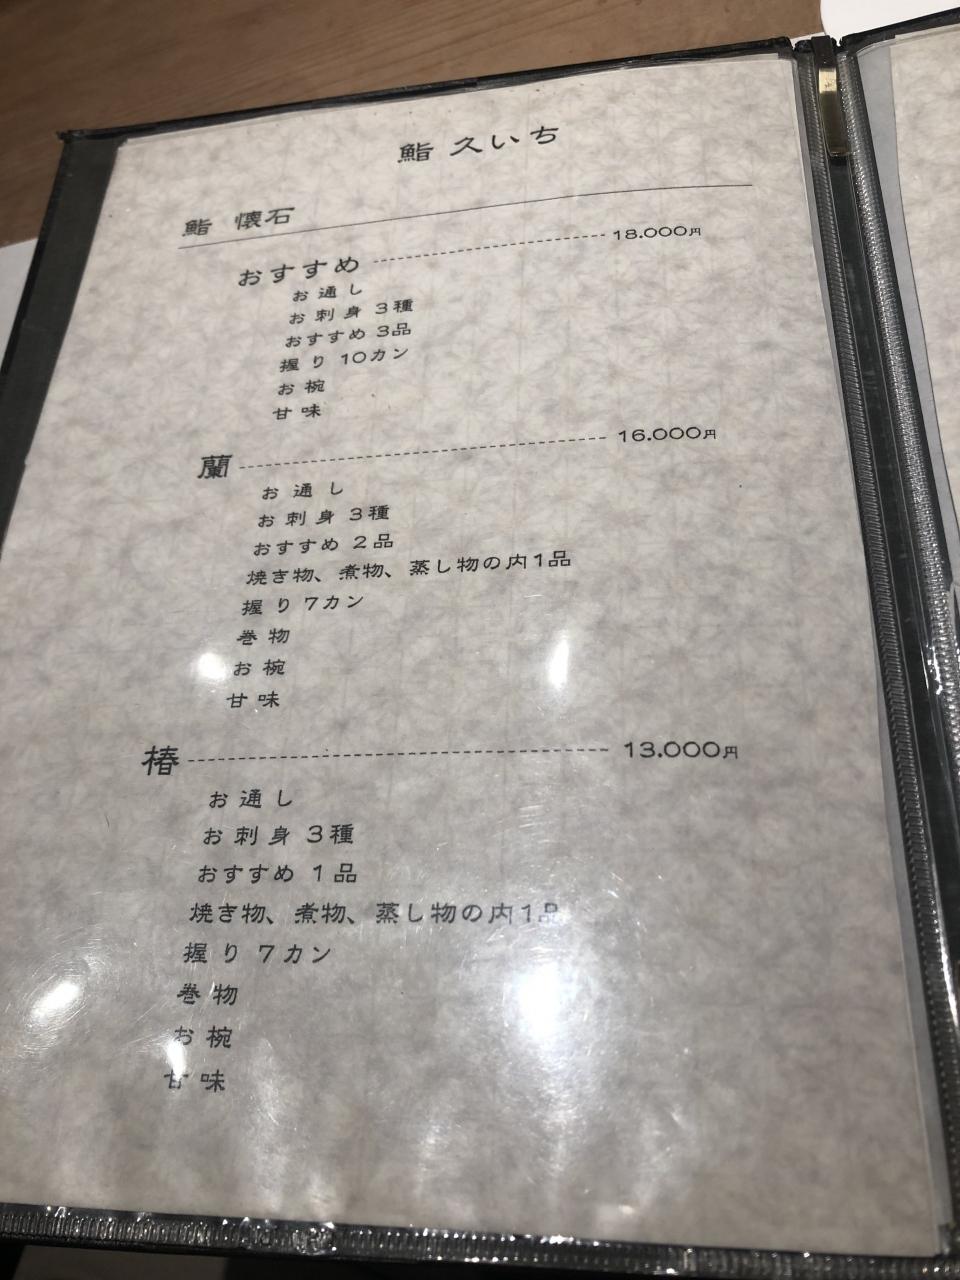 鮨 久いち
鮨 懐石
おすすめ 18.000円
お通し
お刺身 3種
おすすめ 3品
握り 10カン
お椀
甘味
蘭 16.000円
お通し
お刺身 3種
おすすめ 2品
焼き物、煮物、蒸し物の内1品
握り 7カン
巻物
お椀
甘味
椿 13.000円
お通し
お刺身 3種
おすすめ 1品
焼き物、煮物、蒸し物の内1品
握り 7カン
巻物
お椀
甘味